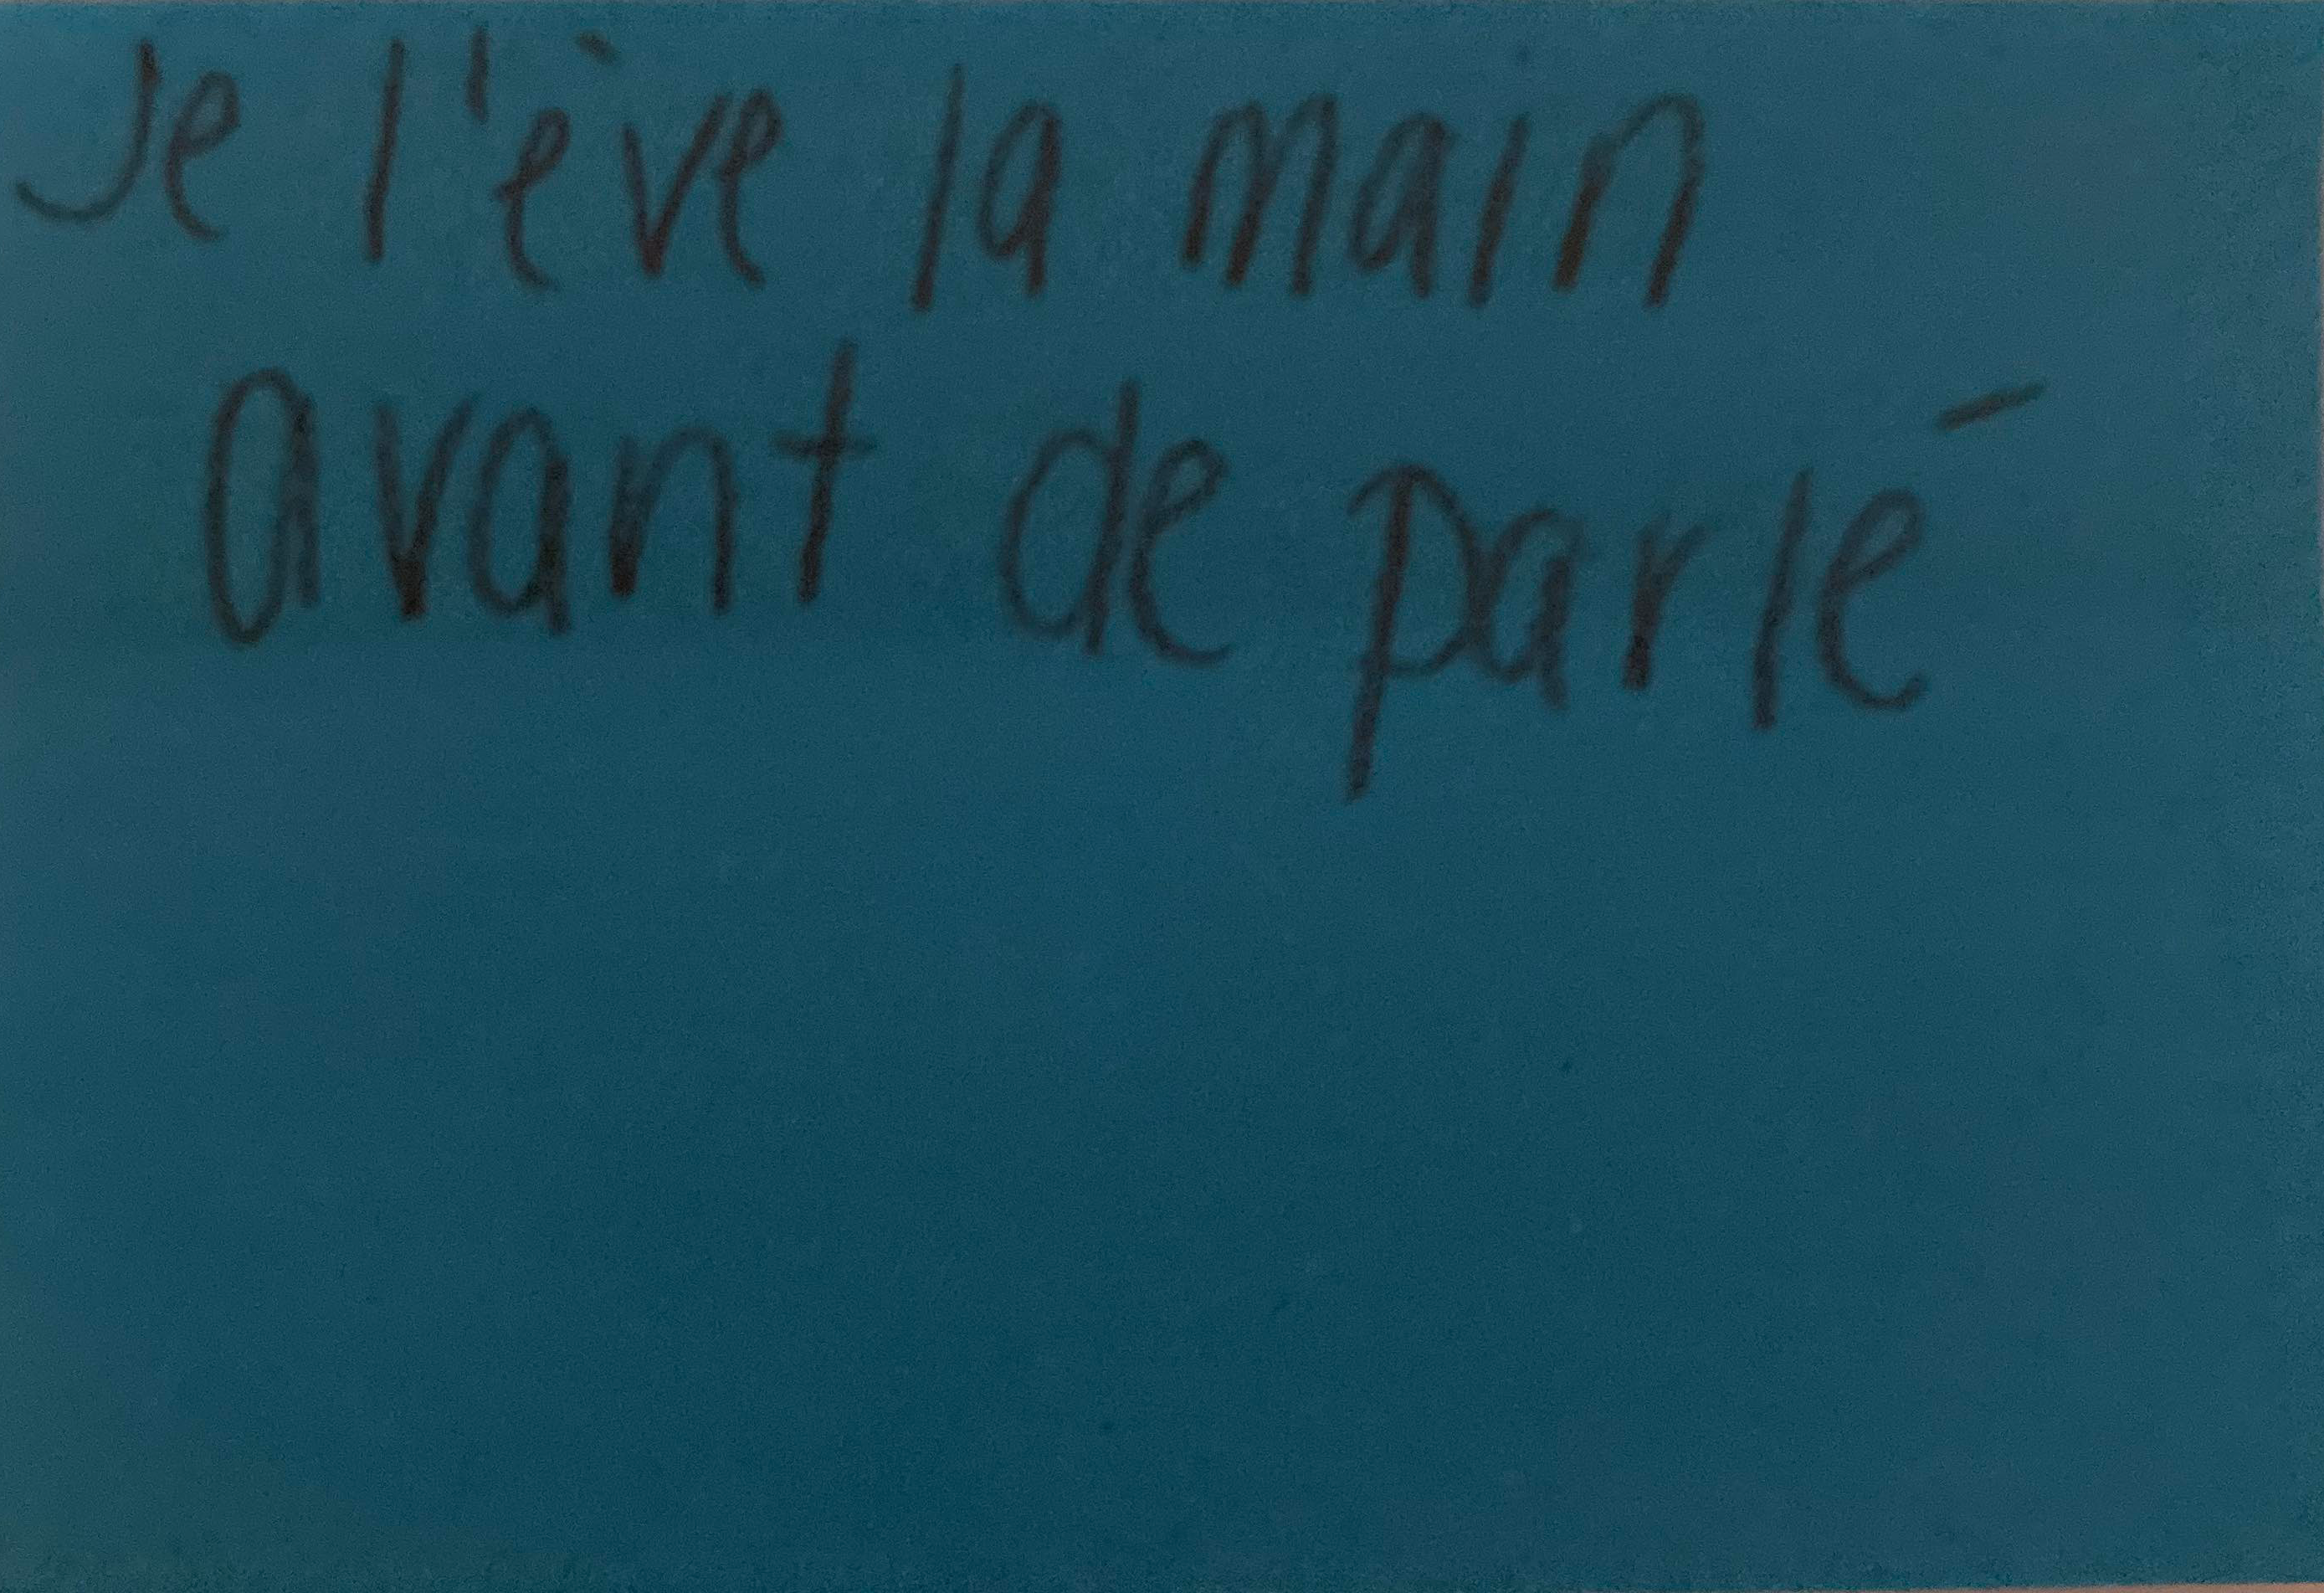 Je l'ève la main
avant de parlé